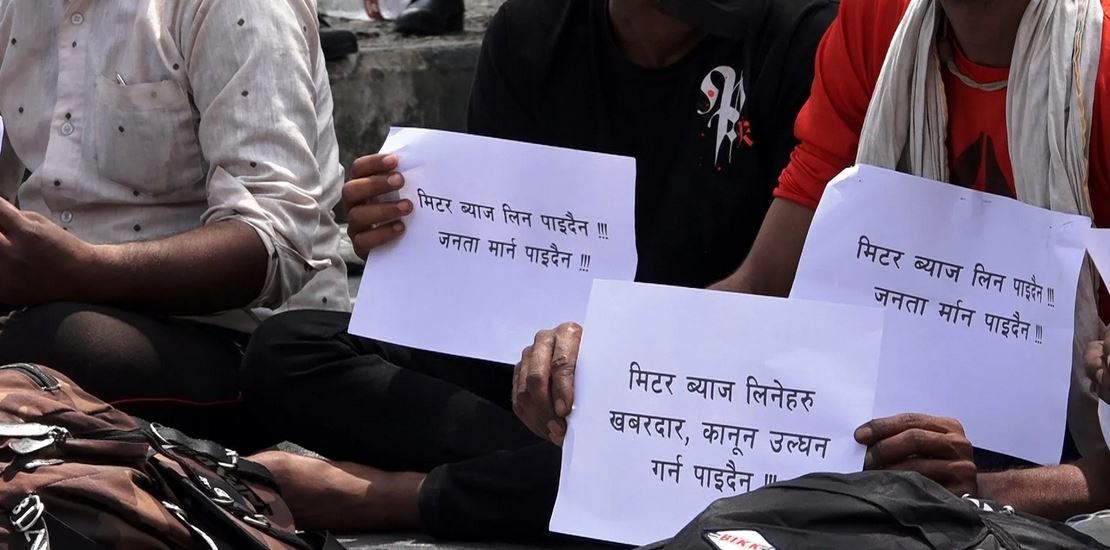 मिटर ब्याज लिन पाइदैन !!!
जनता मार्न पाइदैन !!!
मिटर ब्याज लिन पाइदैन !!!
जनता र्मान पाइदैन !!!
मिटर ब्याज लिनेहरु
खबरदार, कानून उल्घन
गर्न पाइदैन !!!
BIKK